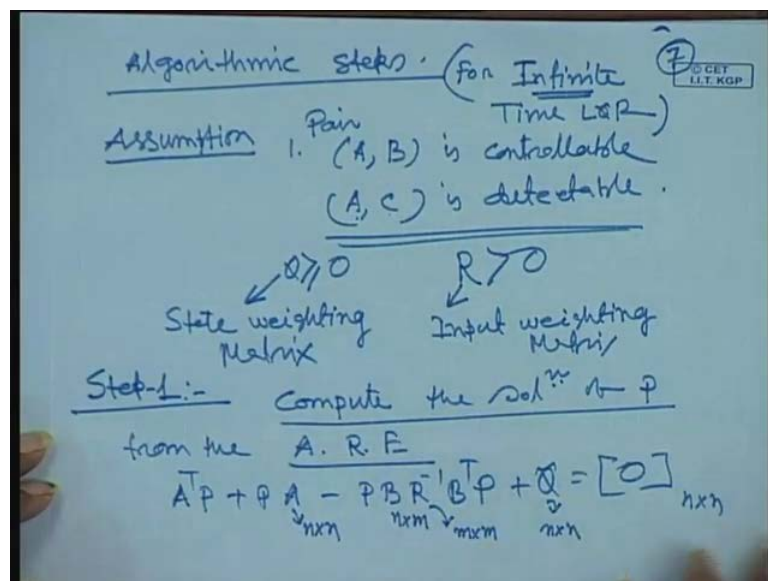 Algorithmic steps. (For Infinite Time LQR)
7
© CET
I.I.T. KGP
Assumption 1. Pair (A, B) is controllable
(A, C) is detectable.
Q ≥ 0 R > 0
State weighting Matrix
Input weighting Matrix
Step-1:- Compute the solⁿ of P
from the A. R. E
AᵀP + PA - PBR⁻¹BᵀP + Q = [0] n×n
n×n n×m m×m n×n